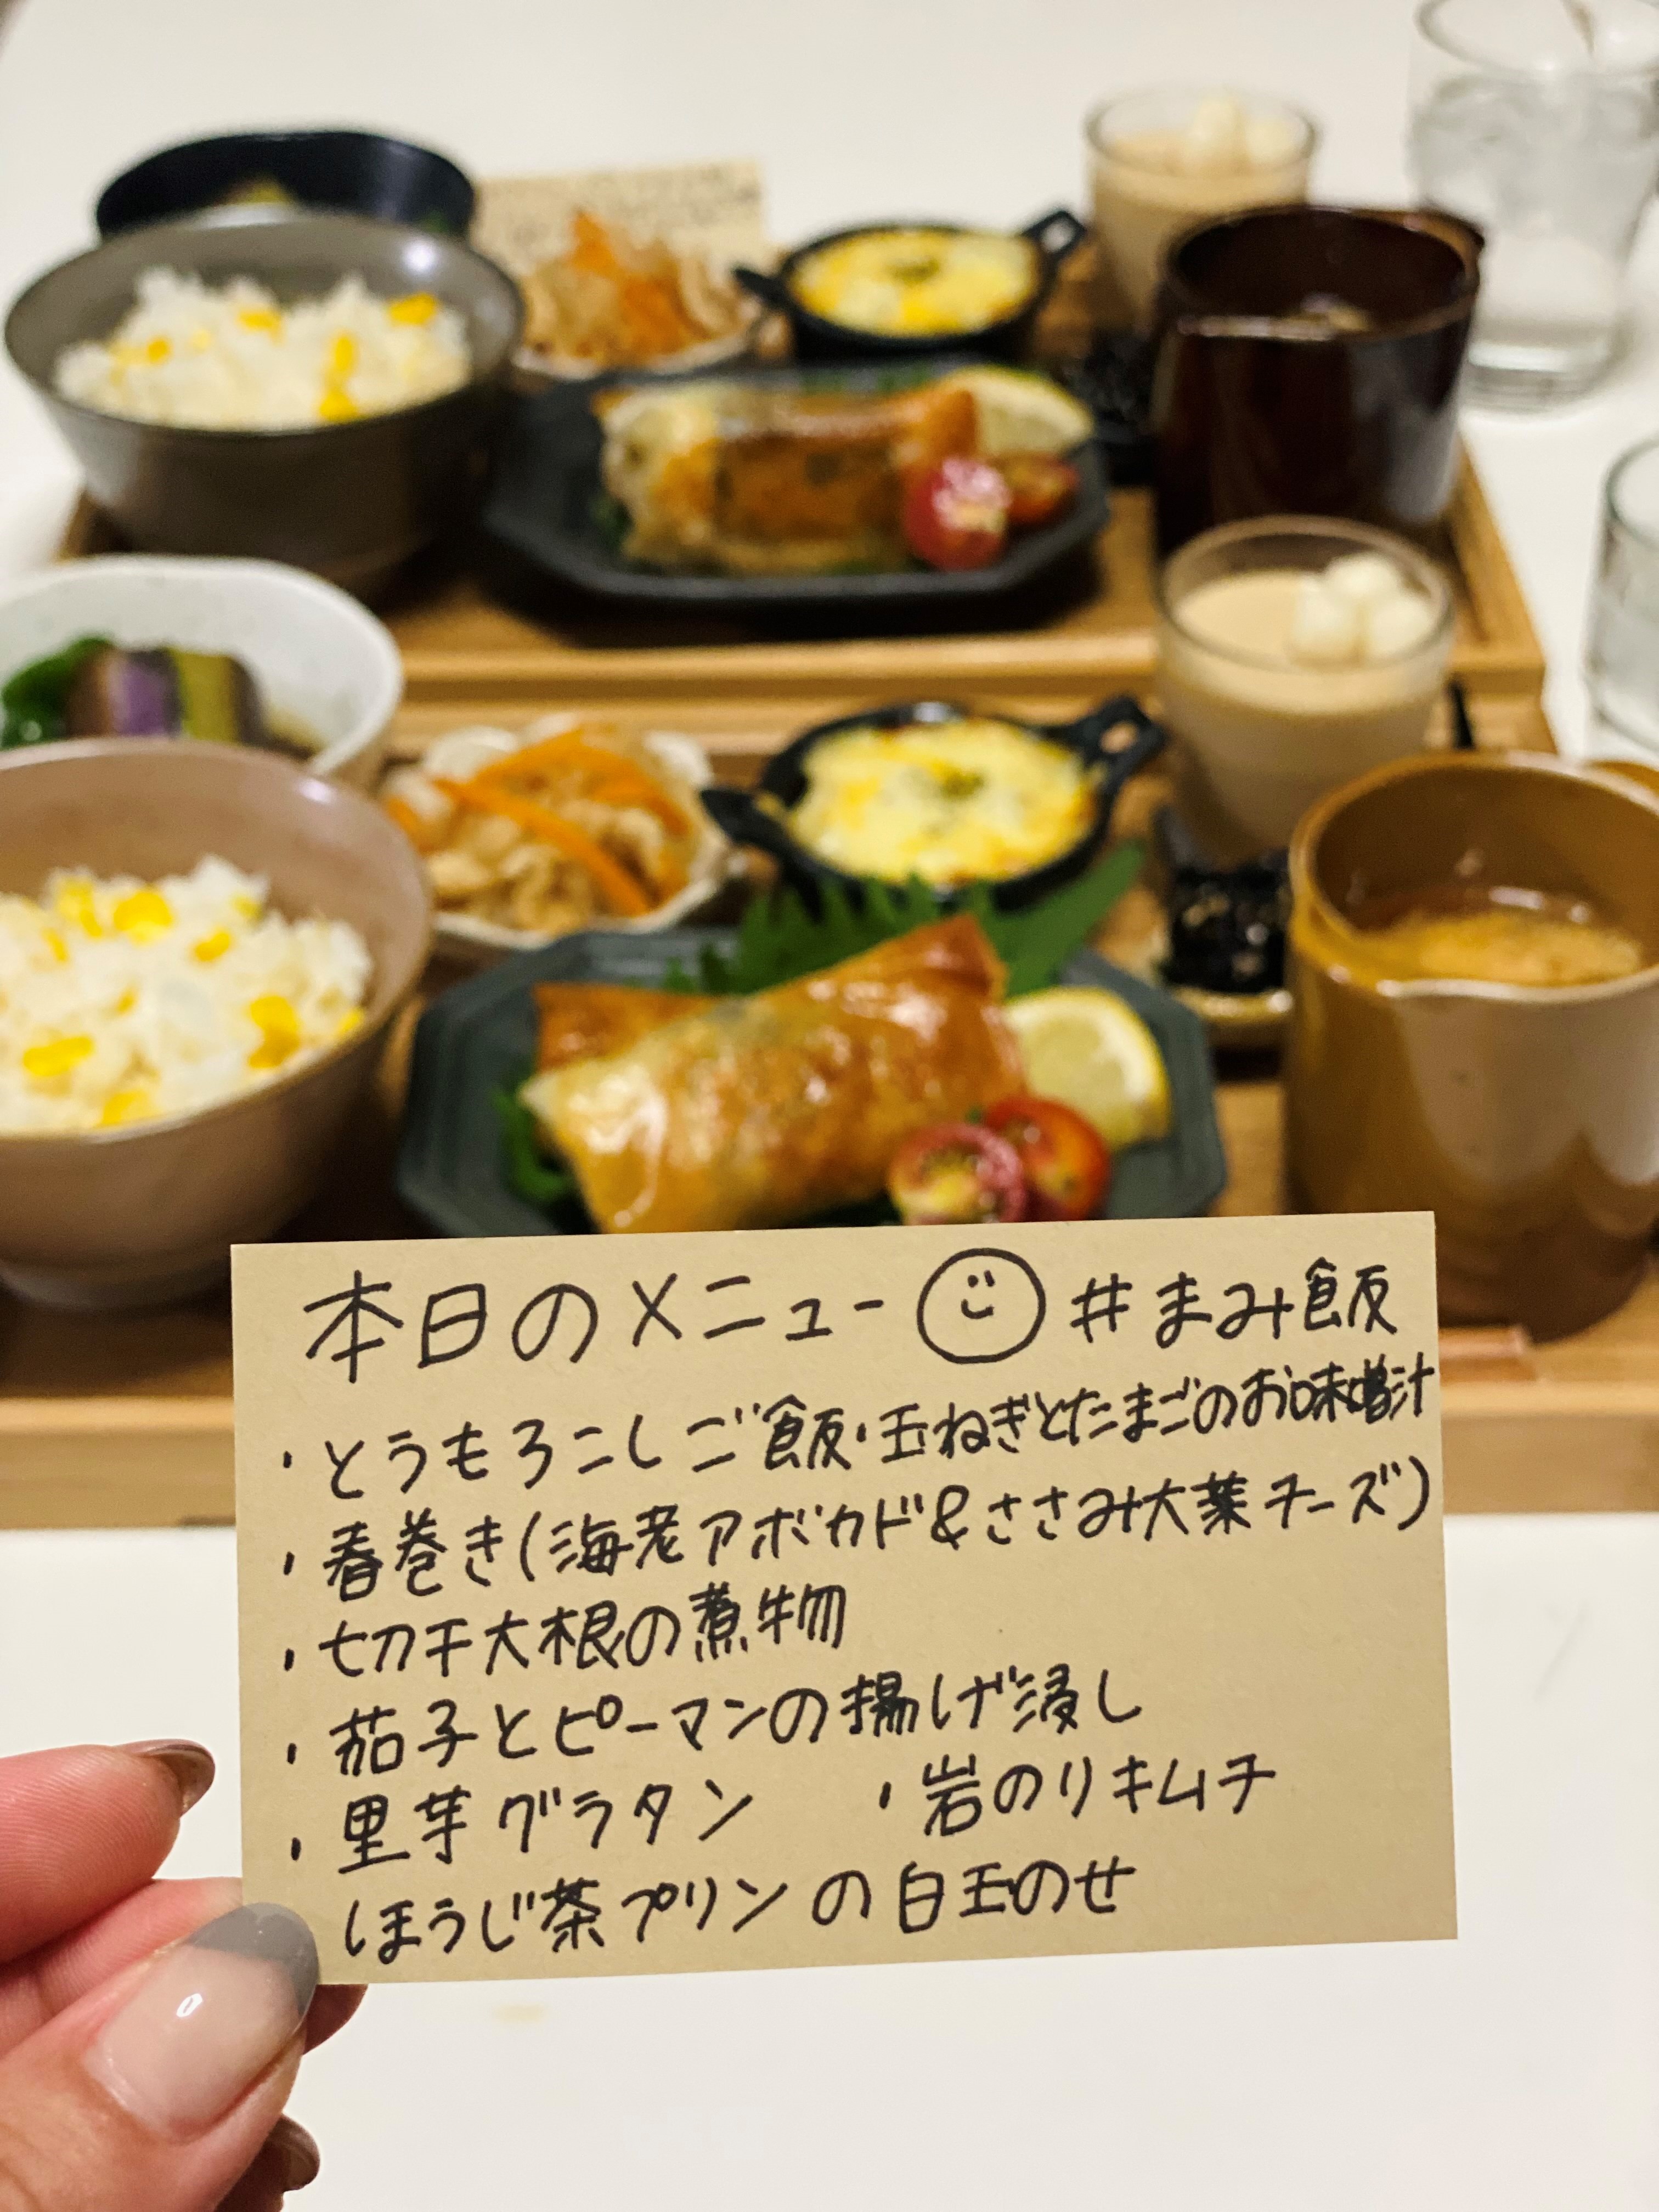 本日のメニュー #まみ飯
・とうもろこしご飯・玉ねぎとたまごのお味噌汁
・春巻き(海老アボカド&ささみ大葉チーズ)
・切干大根の煮物
・茄子とピーマンの揚げ浸し
・里芋グラタン ・岩のりキムチ
ほうじ茶プリンの白玉のせ